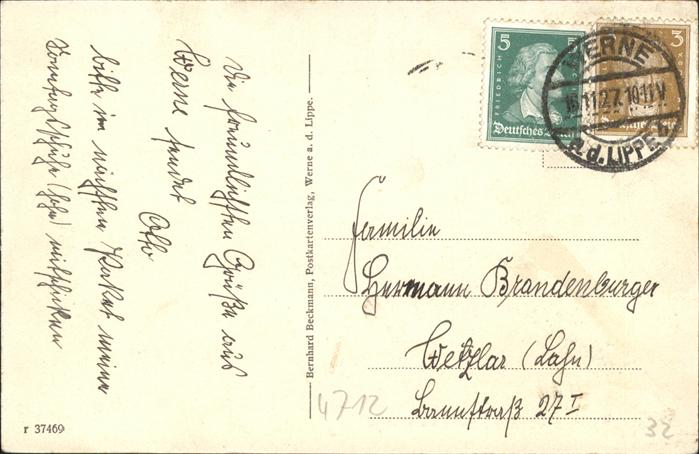 Die freundlichsten Grüße aus
Werne sendet
Otto
bitte im nächsten Paket meine
Sonntagsschuhe (hohe) mitschicken
Bernhard Beckmann, Postkartenverlag, Werne a. d. Lippe.
5 5
FRIEDRICH
Deutsches
3
WERNE
16.11.27.10-11V
a.d.LIPPE
Familie
Hermann Brandenburger
Wetzlar (Lahn)
Baumstraß 27 I
4712
32
r 37469